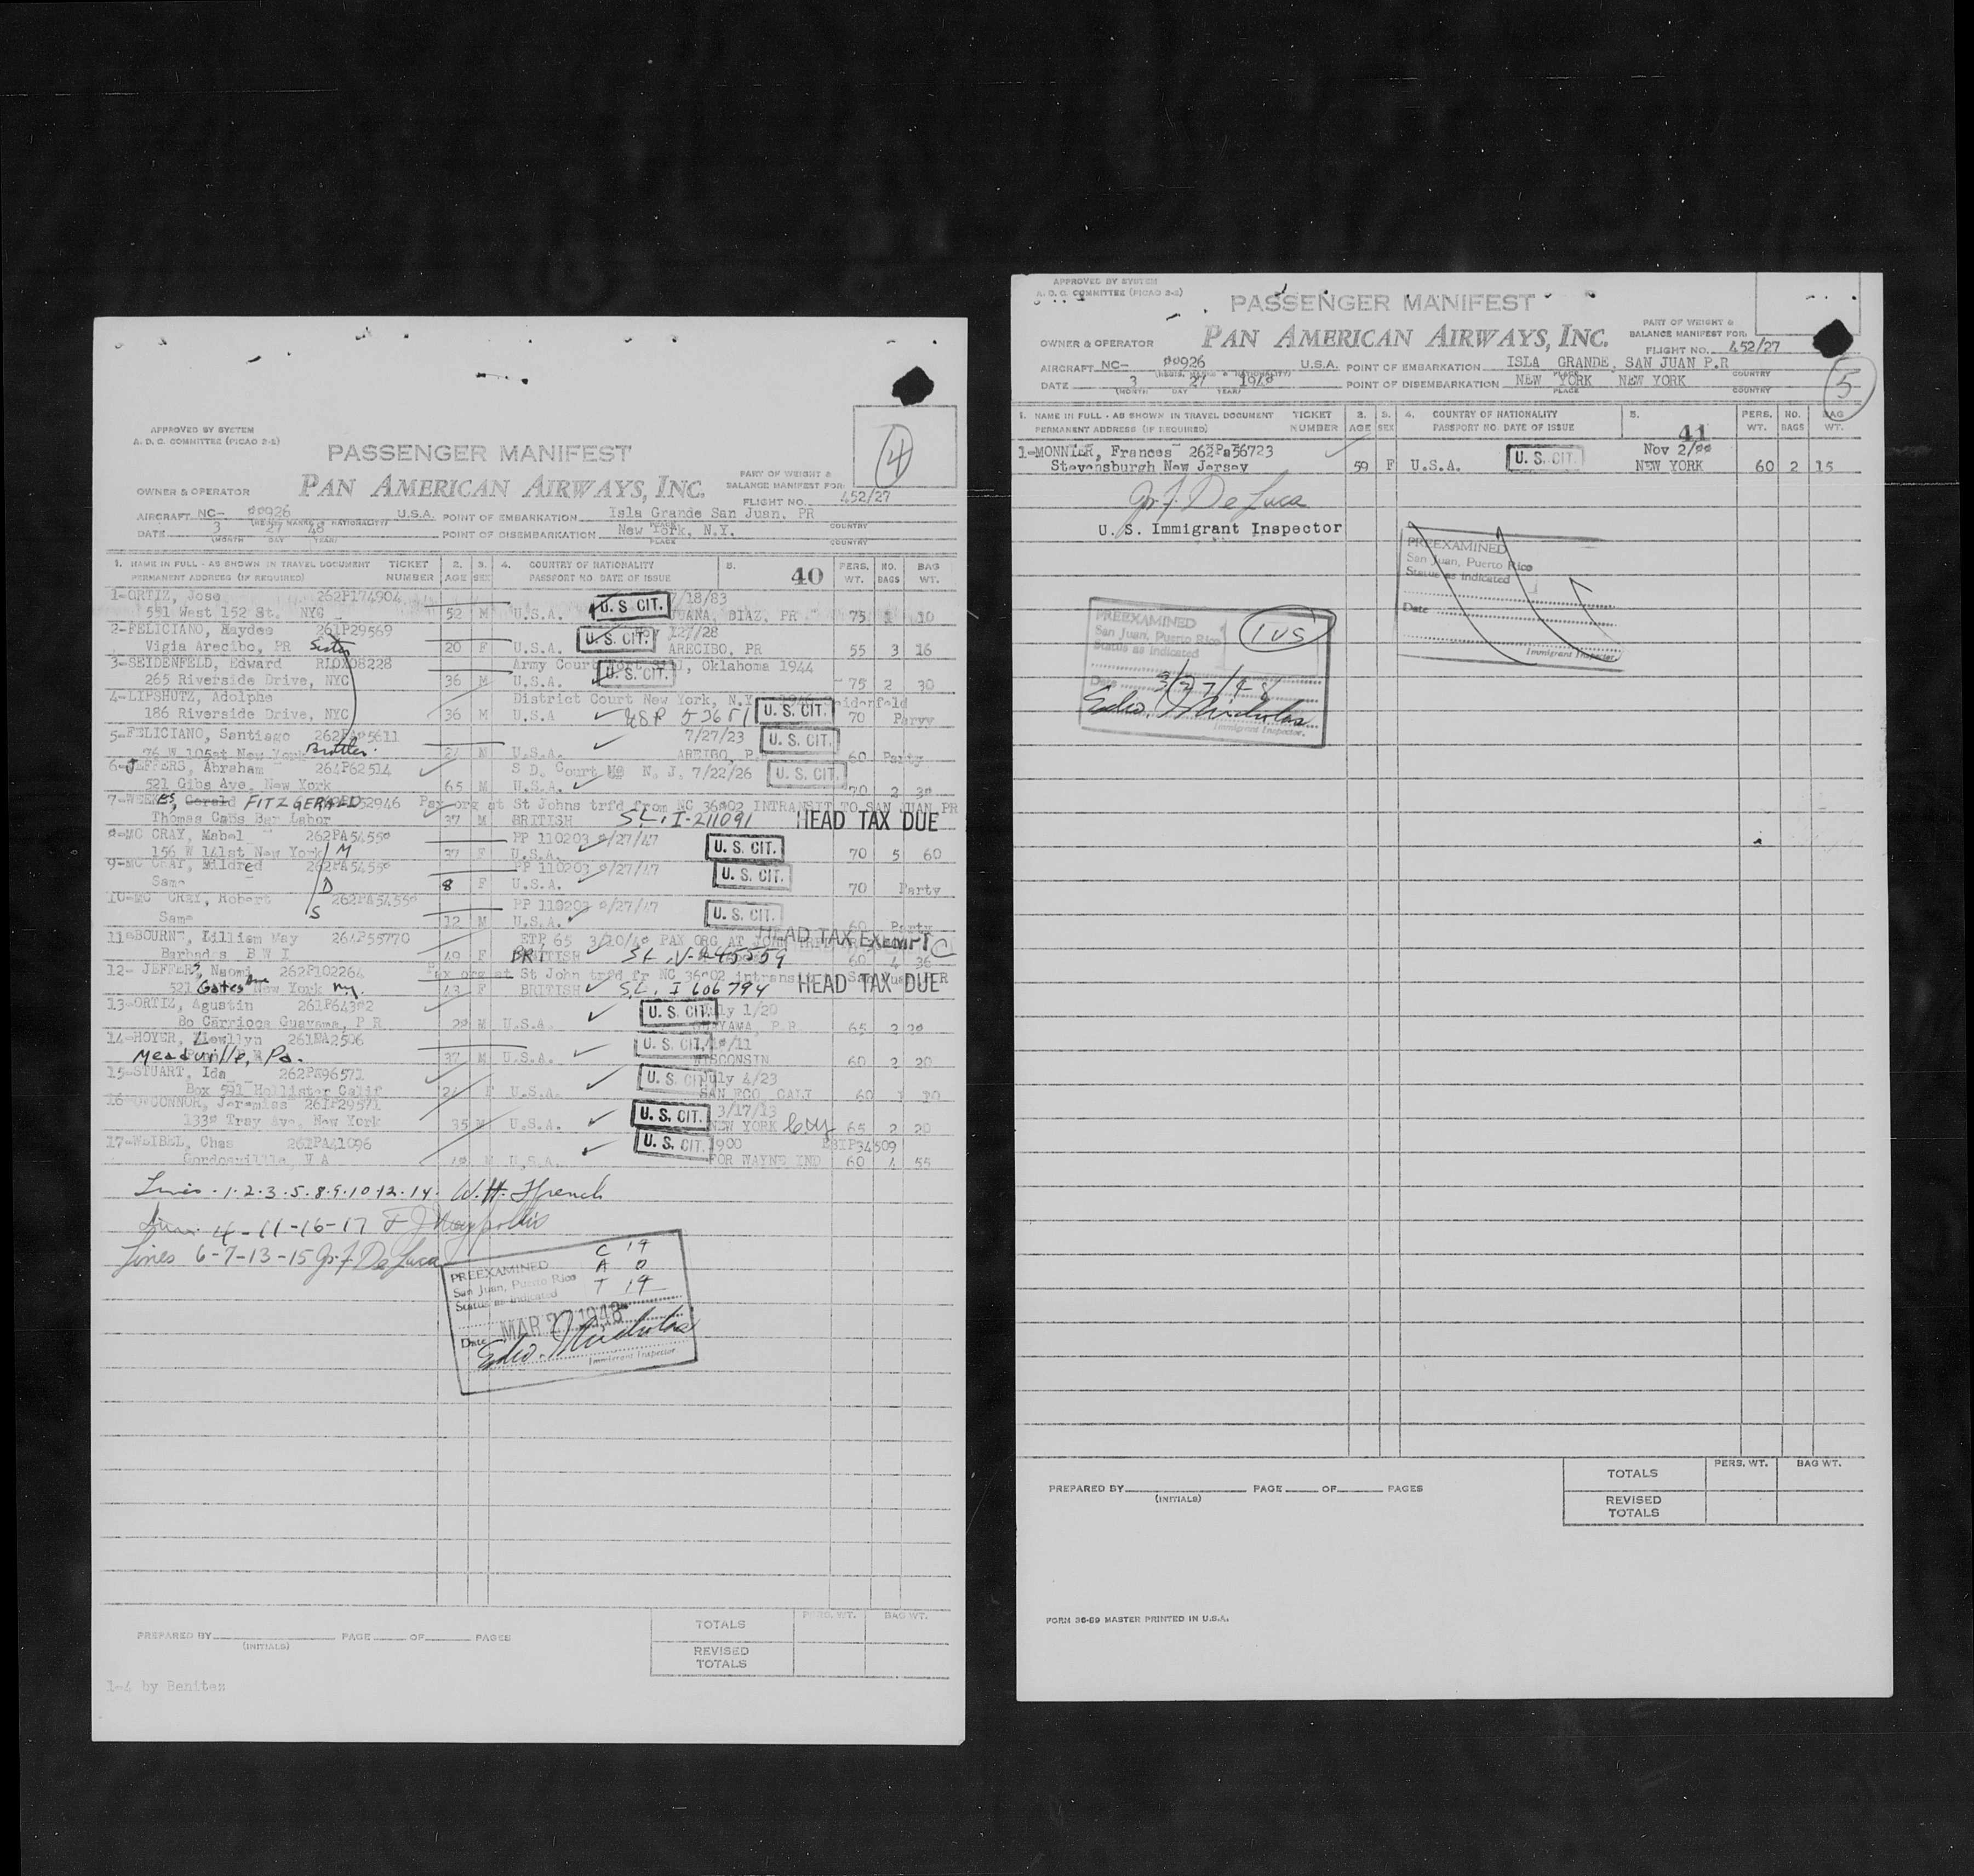 APPROVED BY SYSTEM
A. D. C. COMMITTEE (PICAO 2-2)
4
PASSENGER MANIFEST
PAN AMERICAN AIRWAYS, INC.
PART OF WEIGHT &
BALANCE MANIFEST FOR
FLIGHT NO. 452/27
OWNER & OPERATOR
AIRCRAFT NC- 00926 U.S.A. POINT OF EMBARKATION Isla Grande San Juan, PR
DATE 3 27 48 POINT OF DISEMBARKATION New York, N.Y.
(MONTH DAY YEAR) PLACE COUNTRY
1. NAME IN FULL - AS SHOWN IN TRAVEL DOCUMENT TICKET 2. 3. 4. COUNTRY OF NATIONALITY 5. 40 PERS. NO. BAG
PERMANENT ADDRESS (IF REQUIRED) NUMBER AGE SEX PASSPORT NO. DATE OF ISSUE WT. BAGS WT.
1-ORTIZ, Jose 262P174904 /18/83
551 West 152 St. NYC 52 M U.S.A. U. S. CIT. JUANA, DIAZ, PR 75 1 10
2-FELICIANO, Haydee 261P29569 /27/28
Vigia Arecibo, PR Sister 20 F U.S.A. U. S. CIT. ARECIBO, PR 55 3 16
3-SEIDENFELD, Edward Army Court Oklahoma 1944
265 Riverside Drive, NYC 36 M U.S.A. U. S. CIT. 75 2 30
4-LIPSHUTZ, Adolphe District Court New York, N.Y.
186 Riverside Drive, NYC 36 M U.S.A U. S. CIT. 70
5-FELICIANO, Santiago 7/27/23
76 W 105at New York Brother. 24 M U.S.A. U. S. CIT. 60 Party
6-JEFFERS, Abraham 264P62514 S D. Court N. J, 7/22/26
521 Gibs Ave, New York 65 M U.S.A. U. S. CIT. 70 2 30
7-WEEKES, Gerald FITZGERALD 52946 Pax org at St Johns trfd from NC 36002 INTRANSIT TO SAN JUAN PR
Thomas Cabs Bar Labor 37 M BRITISH SL. I-211091 HEAD TAX DUE
8-MC CRAY, Mabel 262PA54550 PP 110203 8/27/47
156 W 141st New York M 37 F U.S.A. U. S. CIT. 70 5 60
9-MC CRAY, Mildred 262PA54550 PP 110203 8/27/47
Same D 8 F U.S.A. U. S. CIT. 70 Party
10-MC CRAY, Robert 262PA54550 PP 110203 8/27/47
Same S 12 M U.S.A. U. S. CIT. 60 Party
11-BOURNE, Lilliam May 264P55770 HEAD TAX EXEMPT C
Barbados B W I 49 F BRITISH 60 4 36
12- JEFFERS, Naomi 262P102266 Pax org at St John trfd fr NC 36002
521 Gates Ave New York ny. 43 F BRITISH SL. I 606794 HEAD TAX DUE
13-ORTIZ, Agustin 261P64302 July 1/20
80 Carrioca Guayama, P R 28 M U.S.A. U. S. CIT. GUAYAMA, P.R. 65 2 20
14-HOYER, Llewllyn 261PA2506
Meadville, Pa. 37 M U.S.A. U. S. CIT. WISCONSIN 60 2 20
15-STUART, Ida 262PA96571 July 4/23
Box 591 Hollister Calif 24 F U.S.A. U. S. CIT. 60
16-O'CONNOR, Jeremias 261P29571 3/17/13
1338 Troy Ave, New York 35 M U.S.A. U. S. CIT. NEW YORK 65 2 20
17-WEIBEL, Chas 262PA41096 1900
Gordosvillle, V A M U.S.A. U. S. CIT. FOR WAYNE IND 60 4 55
Lines 1.2.3.5.8.9.10.12.14. W.H. Ffrench
Lines 4-11-16-17
Lines 6-7-13-15 Gr.F. DeLuca
PREEXAMINED
San Juan, Puerto Rico
Status as indicated
C 19
A 0
T 19
Date MAR 27 1948
Immigrant Inspector
TOTALS PERS. WT. BAG WT.
PREPARED BY (INITIALS) PAGE OF PAGES
REVISED TOTALS
1-4 by Benites
APPROVED BY SYSTEM
A. D. C. COMMITTEE (PICAO 2-2)
PASSENGER MANIFEST
PAN AMERICAN AIRWAYS, INC.
PART OF WEIGHT &
BALANCE MANIFEST FOR
FLIGHT NO. 452/27
OWNER & OPERATOR
AIRCRAFT NC- 00926 U.S.A. POINT OF EMBARKATION ISLA GRANDE, SAN JUAN P.R
DATE 3 27 1948 POINT OF DISEMBARKATION NEW YORK NEW YORK
(MONTH DAY YEAR) PLACE COUNTRY
5
1. NAME IN FULL - AS SHOWN IN TRAVEL DOCUMENT TICKET 2. 3. 4. COUNTRY OF NATIONALITY 5. PERS. NO. BAG
PERMANENT ADDRESS (IF REQUIRED) NUMBER AGE SEX PASSPORT NO. DATE OF ISSUE 41 WT. BAGS WT.
1-MONNIER, Frances 262Pa56723 Nov 2/00
Stevensburgh New Jersey 59 F U.S.A. U. S. CIT. NEW YORK 60 2 15
Gr.F. DeLuca
U.S. Immigrant Inspector
PREEXAMINED
San Juan, Puerto Rico
Status as indicated
Date
Immigrant Inspector
PREEXAMINED
San Juan, Puerto Rico
Status as indicated
1 US
Date 3/27/48
Immigrant Inspector.
TOTALS PERS. WT. BAG WT.
PREPARED BY (INITIALS) PAGE OF PAGES
REVISED TOTALS
FORM 36-89 MASTER PRINTED IN U.S.A.